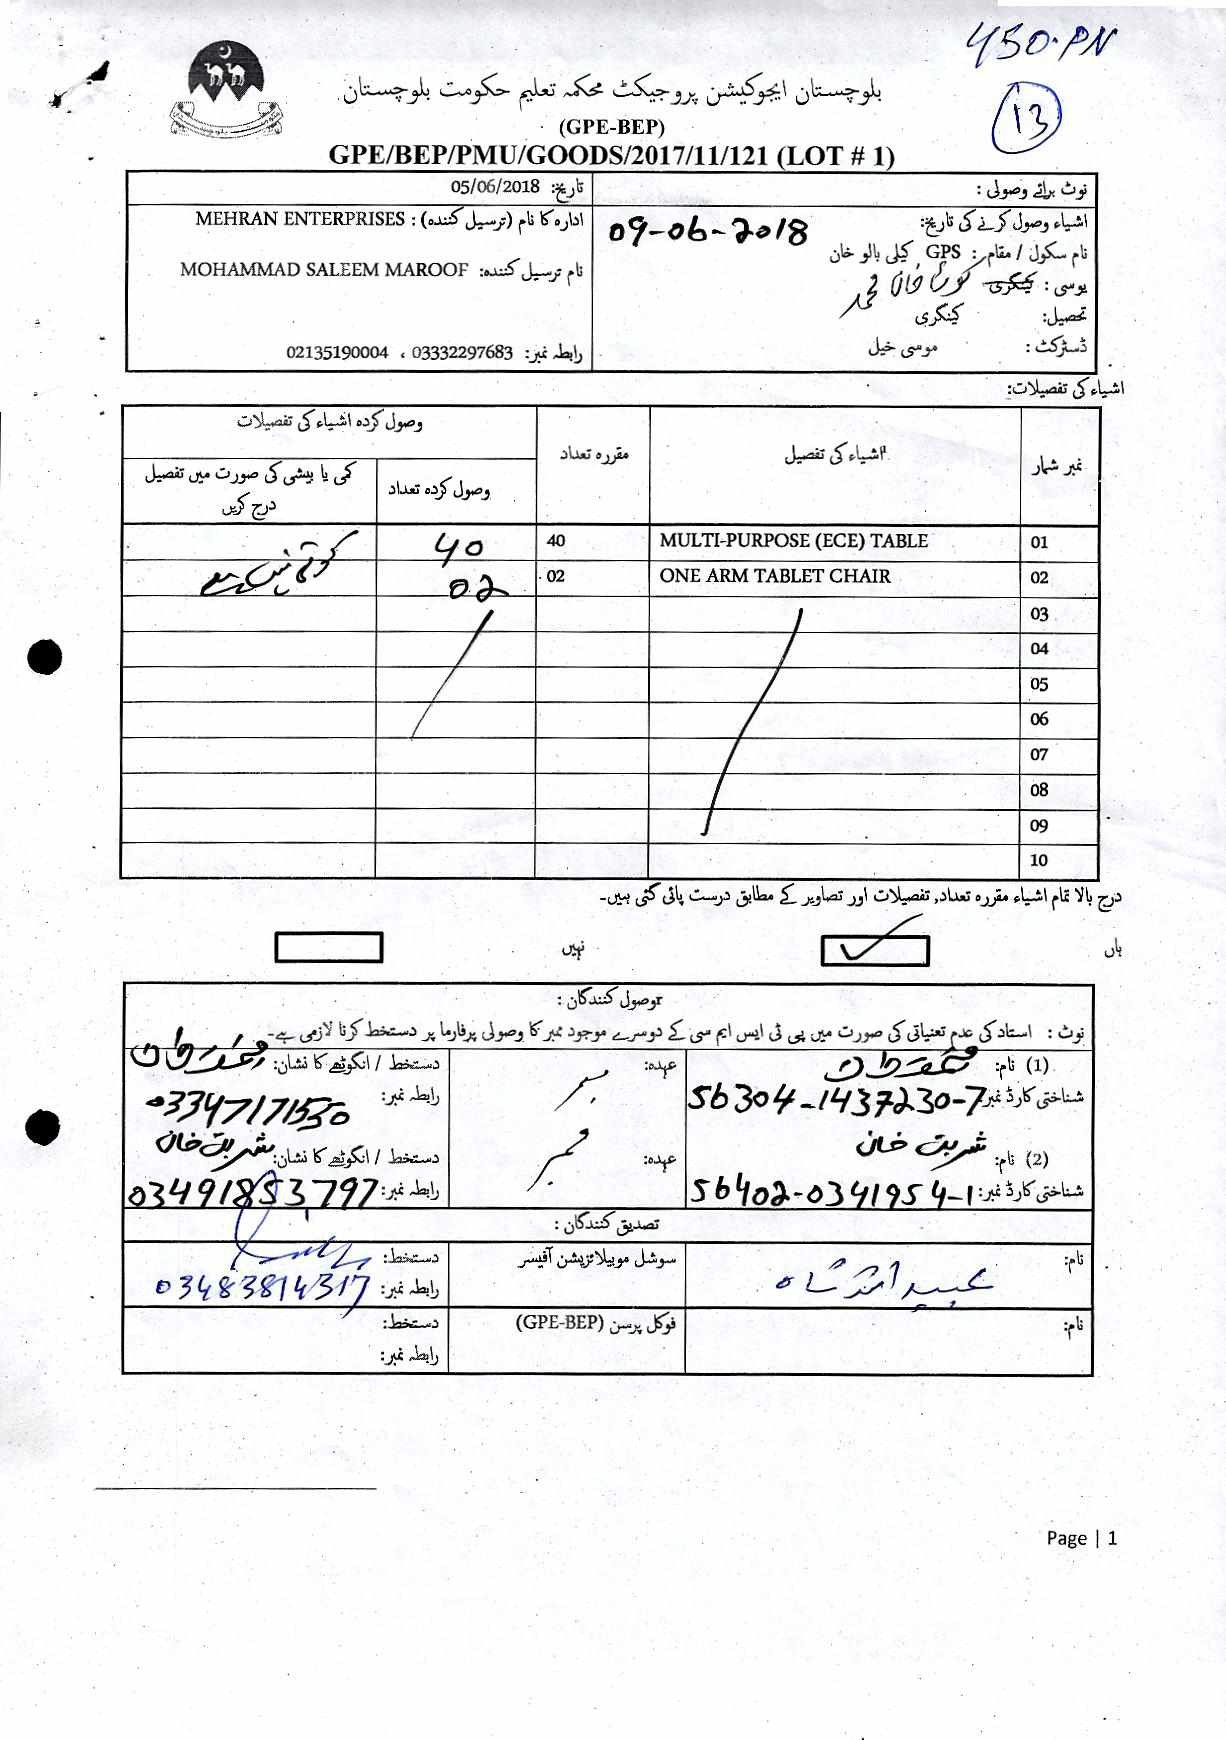 450.PN
13
بلوچستان ایجوکیشن پروجیکٹ محکمہ تعلیم حکومت بلوچستان
(GPE-BEP)
GPE/BEP/PMU/GOODS/2017/11/121 (LOT # 1)
نوٹ برائے وصولی :
تاریخ: 05/06/2018
اشیاء وصول کرنے کی تاریخ: 09-06-2018
ادارہ کا نام (ترسیل کنندہ) : MEHRAN ENTERPRISES
نام سکول / مقام : GPS کیلی بالو خان
نام ترسیل کنندہ: MOHAMMAD SALEEM MAROOF
یوسی : کینگری خان محمد
تحصیل: کینگری
ڈسٹرکٹ : موسی خیل
رابطہ نمبر: 03332297683 ، 02135190004
اشیاء کی تفصیلات:
نمبر شمار اشیاء کی تفصیل مقررہ تعداد وصول کردہ اشیاء کی تفصیلات
وصول کردہ تعداد کمی یا بیشی کی صورت میں تفصیل درج کریں
01 MULTI-PURPOSE (ECE) TABLE 40 40 کوئی نہیں ہے
02 ONE ARM TABLET CHAIR 02 02
03
04
05
06
07
08
09
10
درج بالا تمام اشیاء مقررہ تعداد, تفصیلات اور تصاویر کے مطابق درست پائی گئی ہیں۔
ہاں نہیں
وصول کنندگان :
نوٹ : استاد کی عدم تعنیاتی کی صورت میں پی ٹی ایس ایم سی کے دوسرے موجود ممبر کا وصولی پرفارما پر دستخط کرنا لازمی ہے۔
(1) نام: عہدہ: ممبر دستخط / انگوٹھے کا نشان:
شناختی کارڈ نمبر: 56304-1437230-7 رابطہ نمبر: 03347171550
(2) نام: شربت خان عہدہ: ممبر دستخط / انگوٹھے کا نشان: شربت خان
شناختی کارڈ نمبر: 56402-0341954-1 رابطہ نمبر: 03491853797
تصدیق کنندگان :
نام: سوشل موبیلائزیشن آفیسر دستخط:
رابطہ نمبر: 03483814317
نام: فوکل پرسن (GPE-BEP) دستخط:
رابطہ نمبر:
Page | 1